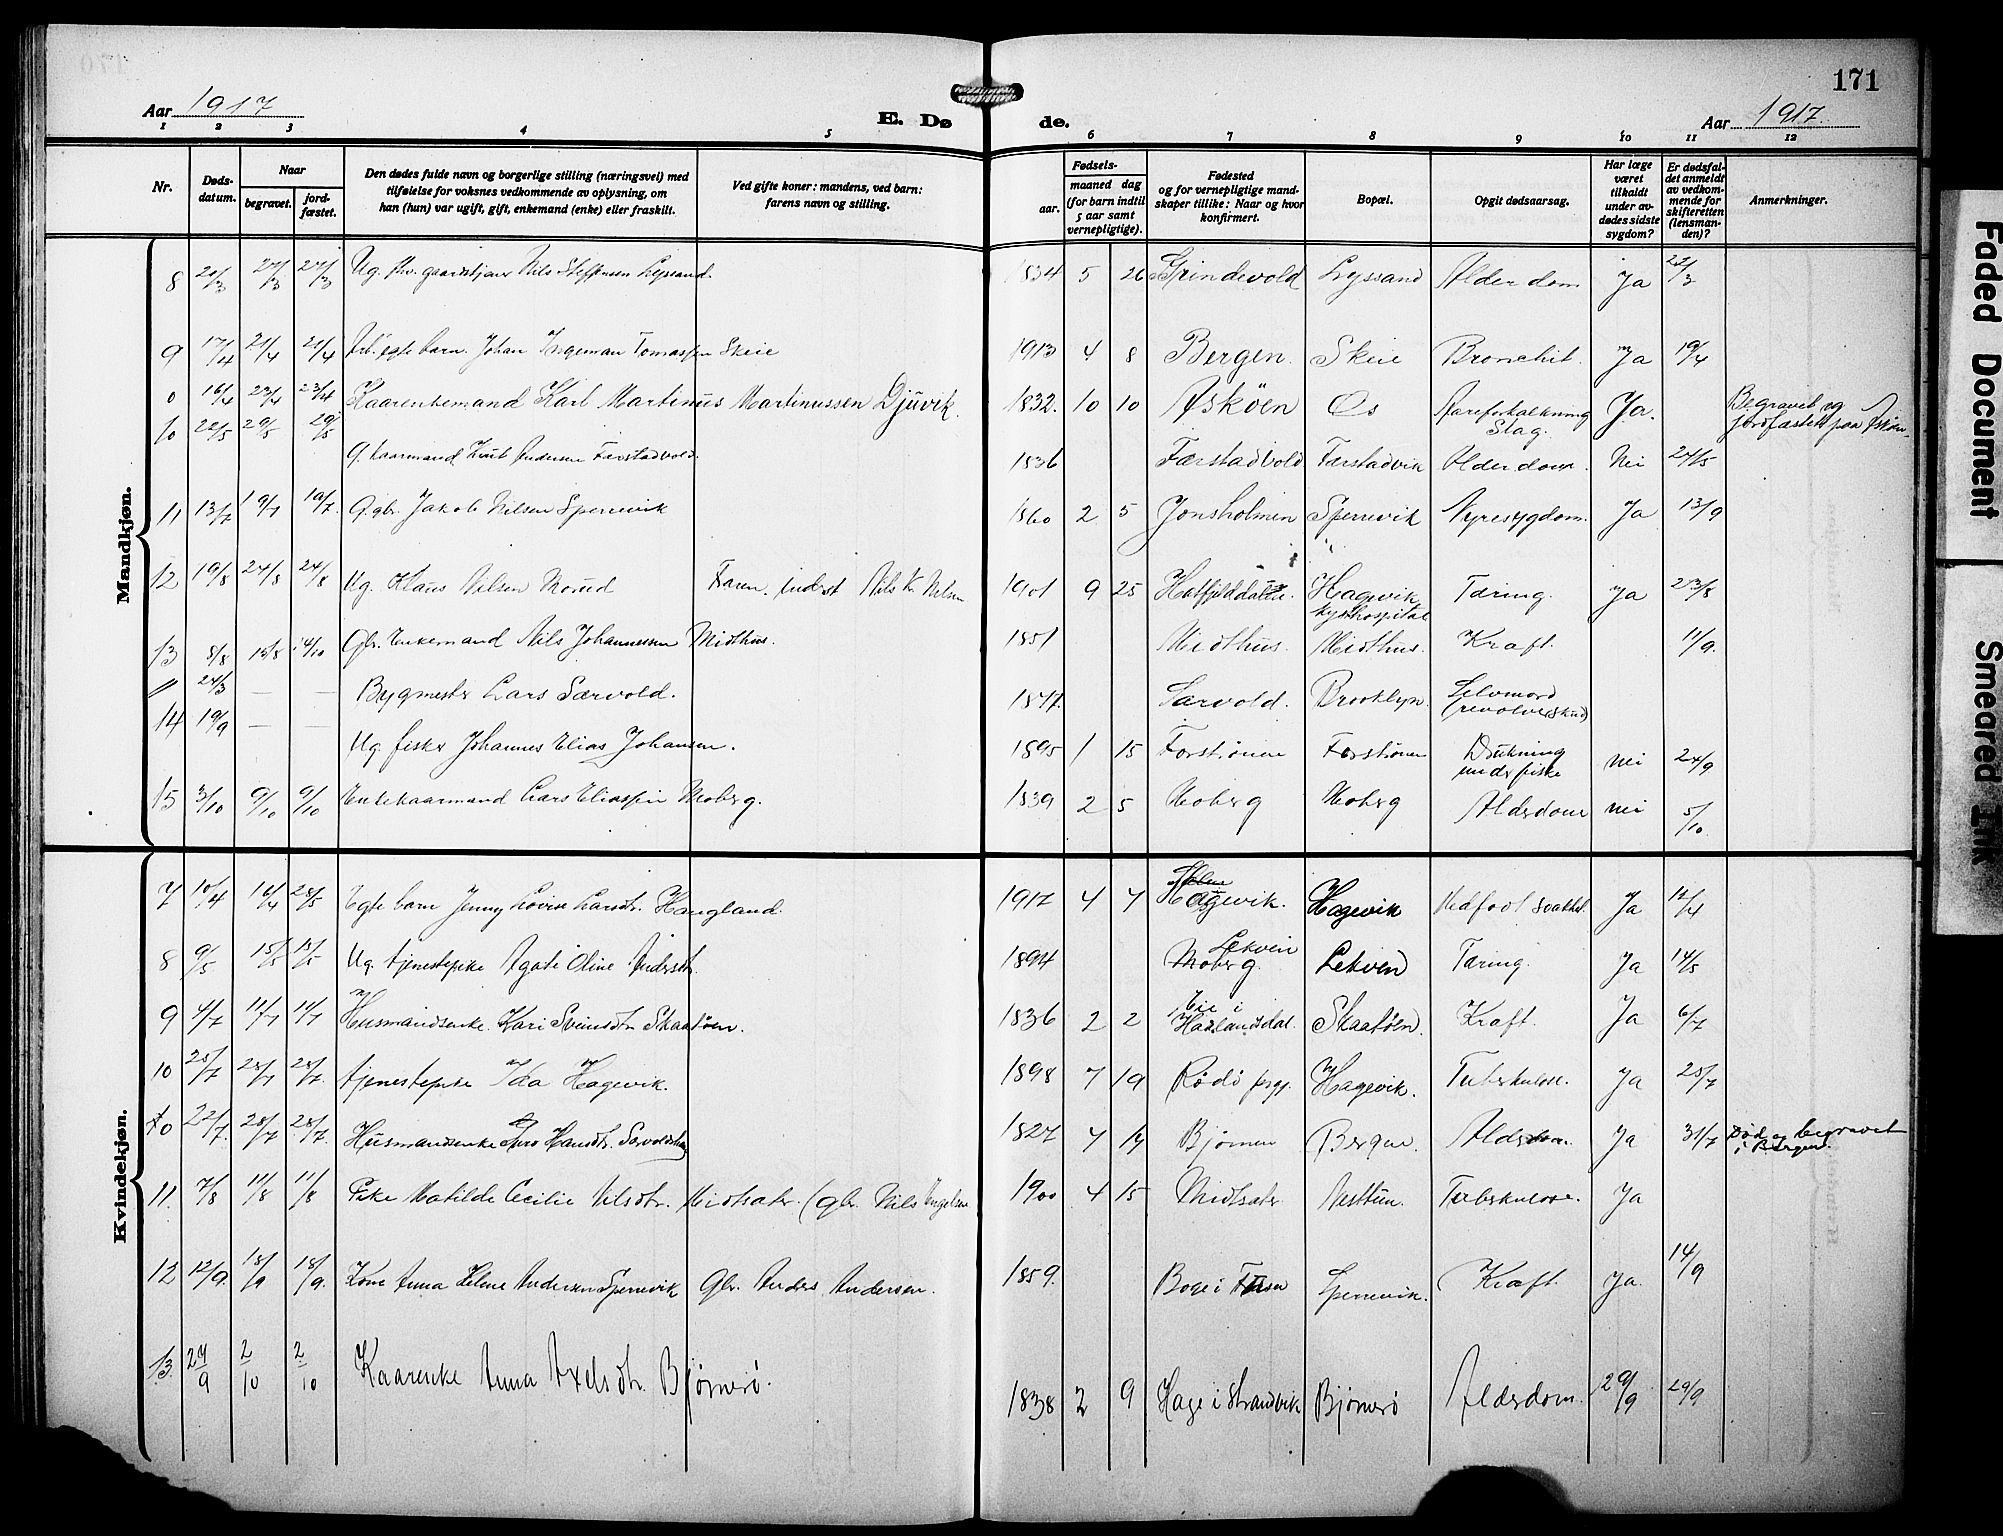 171
Aar 1917
E. Dø de.
Aar 1917.
1 2 3 4 5 6 7 8 9 10 11 12
Nr.
Døds-
datum.
Naar
begravet.
jord-
fæstet.
Den dødes fulde navn og borgerlige stilling (næringsvei) med
tilføielse for voksnes vedkommende av oplysning, om
han (hun) var ugift, gift, enkemand (enke) eller fraskilt.
Ved gifte koner: mandens, ved barn:
farens navn og stilling.
Fødsels-
aar.
maaned dag
(for barn indtil
5 aar samt
vernepligtige).
Fødested
og for vernepligtige mand-
skaper tillike: Naar og hvor
konfirmert.
Bopæl.
Opgit dødsaarsag.
Har læge
været
tilkaldt
under av-
dødes sidste
sygdom?
Er dødsfal-
det anmeldt
av vedkom-
mende for
skifteretten
(lensman-
den)?
Anmerkninger.
Mandkjøn.
8 20/3 27/3 27/3 Ug. fhv. gaardstjener Nils Steffensen Lyssand. 1834 5 26 Grindevold Lyssand Alderdom Ja 22/3
9 17/4 21/4 21/4 Arb. egte barn. Johan Ingeman Tomassen Skeie 1913 4 8 Bergen. Skeie Bronchit. Ja 19/4
0 16/4 23/4 23/4 Kaarenkemand Karl Martinus Martinussen Djuvik. 1832. 10 10 Askøen Os Aareforkalkning Slag. Ja. Begravet og
jordfæstet paa Askøen
10 22/5 29/5 29/5 G. kaarmand Knut Andersen Færstadvold. 1836 Færstadvold Færstadvik Alderdom. Nei 24/5
11 13/7 19/7 19/7. G. gbr. Jakob Nilsen Sperrevik 1860 2 5 Jonsholmen Sperrevik Nyresygdom. Ja 13/9
12 19/8 24/8 24/8 Ug. Klaus Nilsen Morud Faren. inderst Nils K. Nilsen 1901 9 25 Hatfjelddalen. Hagevik
kysthospital Tæring. Ja 23/8
13 8/8 13/8 14/10 Gbr. Enkemand Nils Johannessen Midthus. 1851 Midthus. Midthus. Kræft. 11/9.
" 24/3 — — Bygmester Lars Særvold. 1847. Særvold. Brooklyn. Selvmord
(revolverskud)
14 19/9 — — Ug. fisker Johannes Elias Johansen. 1895 1 15 Forstrønen Forstrønen Drukning
under fiske nei 24/9
15 3/10 9/10 9/10 Enkekaarmand Lars Eliassen Moberg. 1839 2 5 Moberg Moberg Alderdom nei 5/10.
Kvindekjøn.
7 10/4 16/4 28/5 Egte barn Jenny Lovise Larsdtr. Haugland. 1917 4 7 Hagevik. Hagevik Medfødt svakhet. Ja 12/4
8 9/5 15/5 15/5 Ug. tjenestepike Agate Oline Andersdtr. 1894 Lekven
Moberg. Lekven Tæring. Ja 14/5
9 4/7 11/7 11/7 Husmandsenke Kari Sveinsdtr. Skaatøen. 1836 2 2 Eie i
Haalandsdal. Skaatøen. Kræft. Ja 6/7
10 25/7 28/7 28/7. Tjenestepike Ida Hagevik. 1898 7 19 Rødø prgj. Hagevik. Tuberkulose. Ja 25/7
10 22/7. 28/7 28/7. Husmandsenke Hansdtr. 1827 4 14 Bjørnen Bergen Alderdom. Ja 31/7 Død og begravet
i Bergen.
11. 7/8 11/8 11/8 Pike Matilde Cecilie Nilsdtr. Midtsæter (gbr. Nils Ingelsen 1900 4 15 Midtsæter Nesttun. Tuberkulose. Ja
12 12/9. 18/9 18/9. Kone Anna Helene Andersen Sperrevik Gbr. Anders Andersen. 1859. Boge i Fusa Sperrevik. Kræft Ja. 14/9
13. 27/9 2/10 2/10 Kaarenke Anna Axelsdtr. Bjørnerø. 1838 2 9 Hage i Strandvik Bjørnerø Alderdom. 29/9 29/9
Faded Document
Smeared Ink